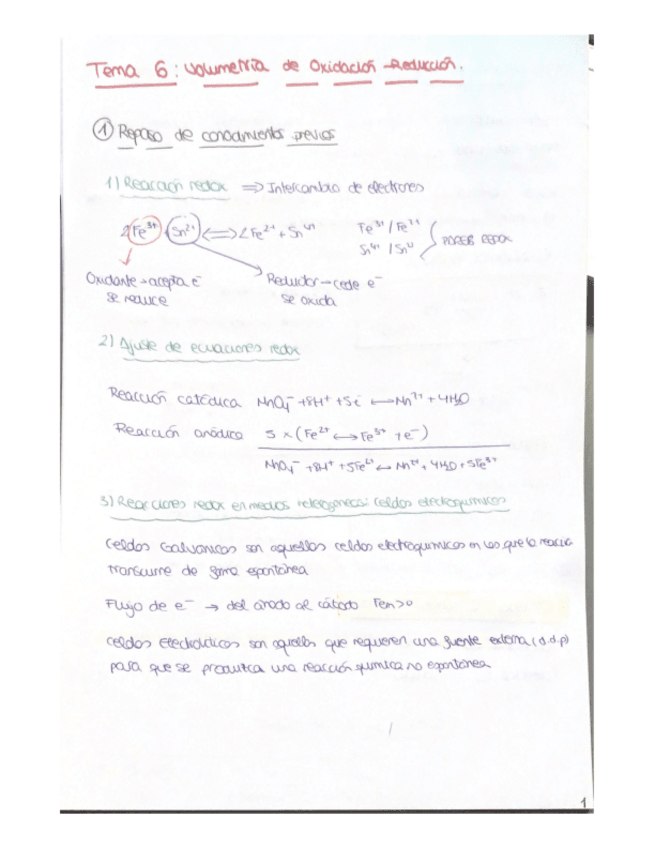 Tema 6: Volumetria de Oxidación-Reducción.
① Repaso de conocimientos previos
1) Reacción redox ⇒ Intercambio de electrones
2Fe³⁺ + Sn²⁺ ⟺ 2Fe²⁺ + Sn⁴⁺ Fe³⁺/Fe²⁺
Sn⁴⁺/Sn²⁺ PARES REDOX
Oxidante → acepta e⁻ Reductor → cede e⁻
se reduce se oxida
2) Ajuste de ecuaciones redox
Reacción catódica MnO₄⁻ + 8H⁺ + 5e⁻ ⟷ Mn²⁺ + 4H₂O
Reacción anódica 5 x (Fe²⁺ ⟷ Fe³⁺ + e⁻)
MnO₄⁻ + 8H⁺ + 5Fe²⁺ ⟷ Mn²⁺ + 4H₂O + 5Fe³⁺
3) Reacciones redox en medios heterogeneos: Celdas electroquimicas
Celdas Galvanicas son aquellas celdas electroquimicas en las que la reacción
transcurre de forma espontánea
Flujo de e⁻ → del ánodo al cátodo Fem>0
Celdas Electrolíticas son aquellas que requieren una fuente externa (d.d.p)
para que se produzca una reacción química no espontánea
1